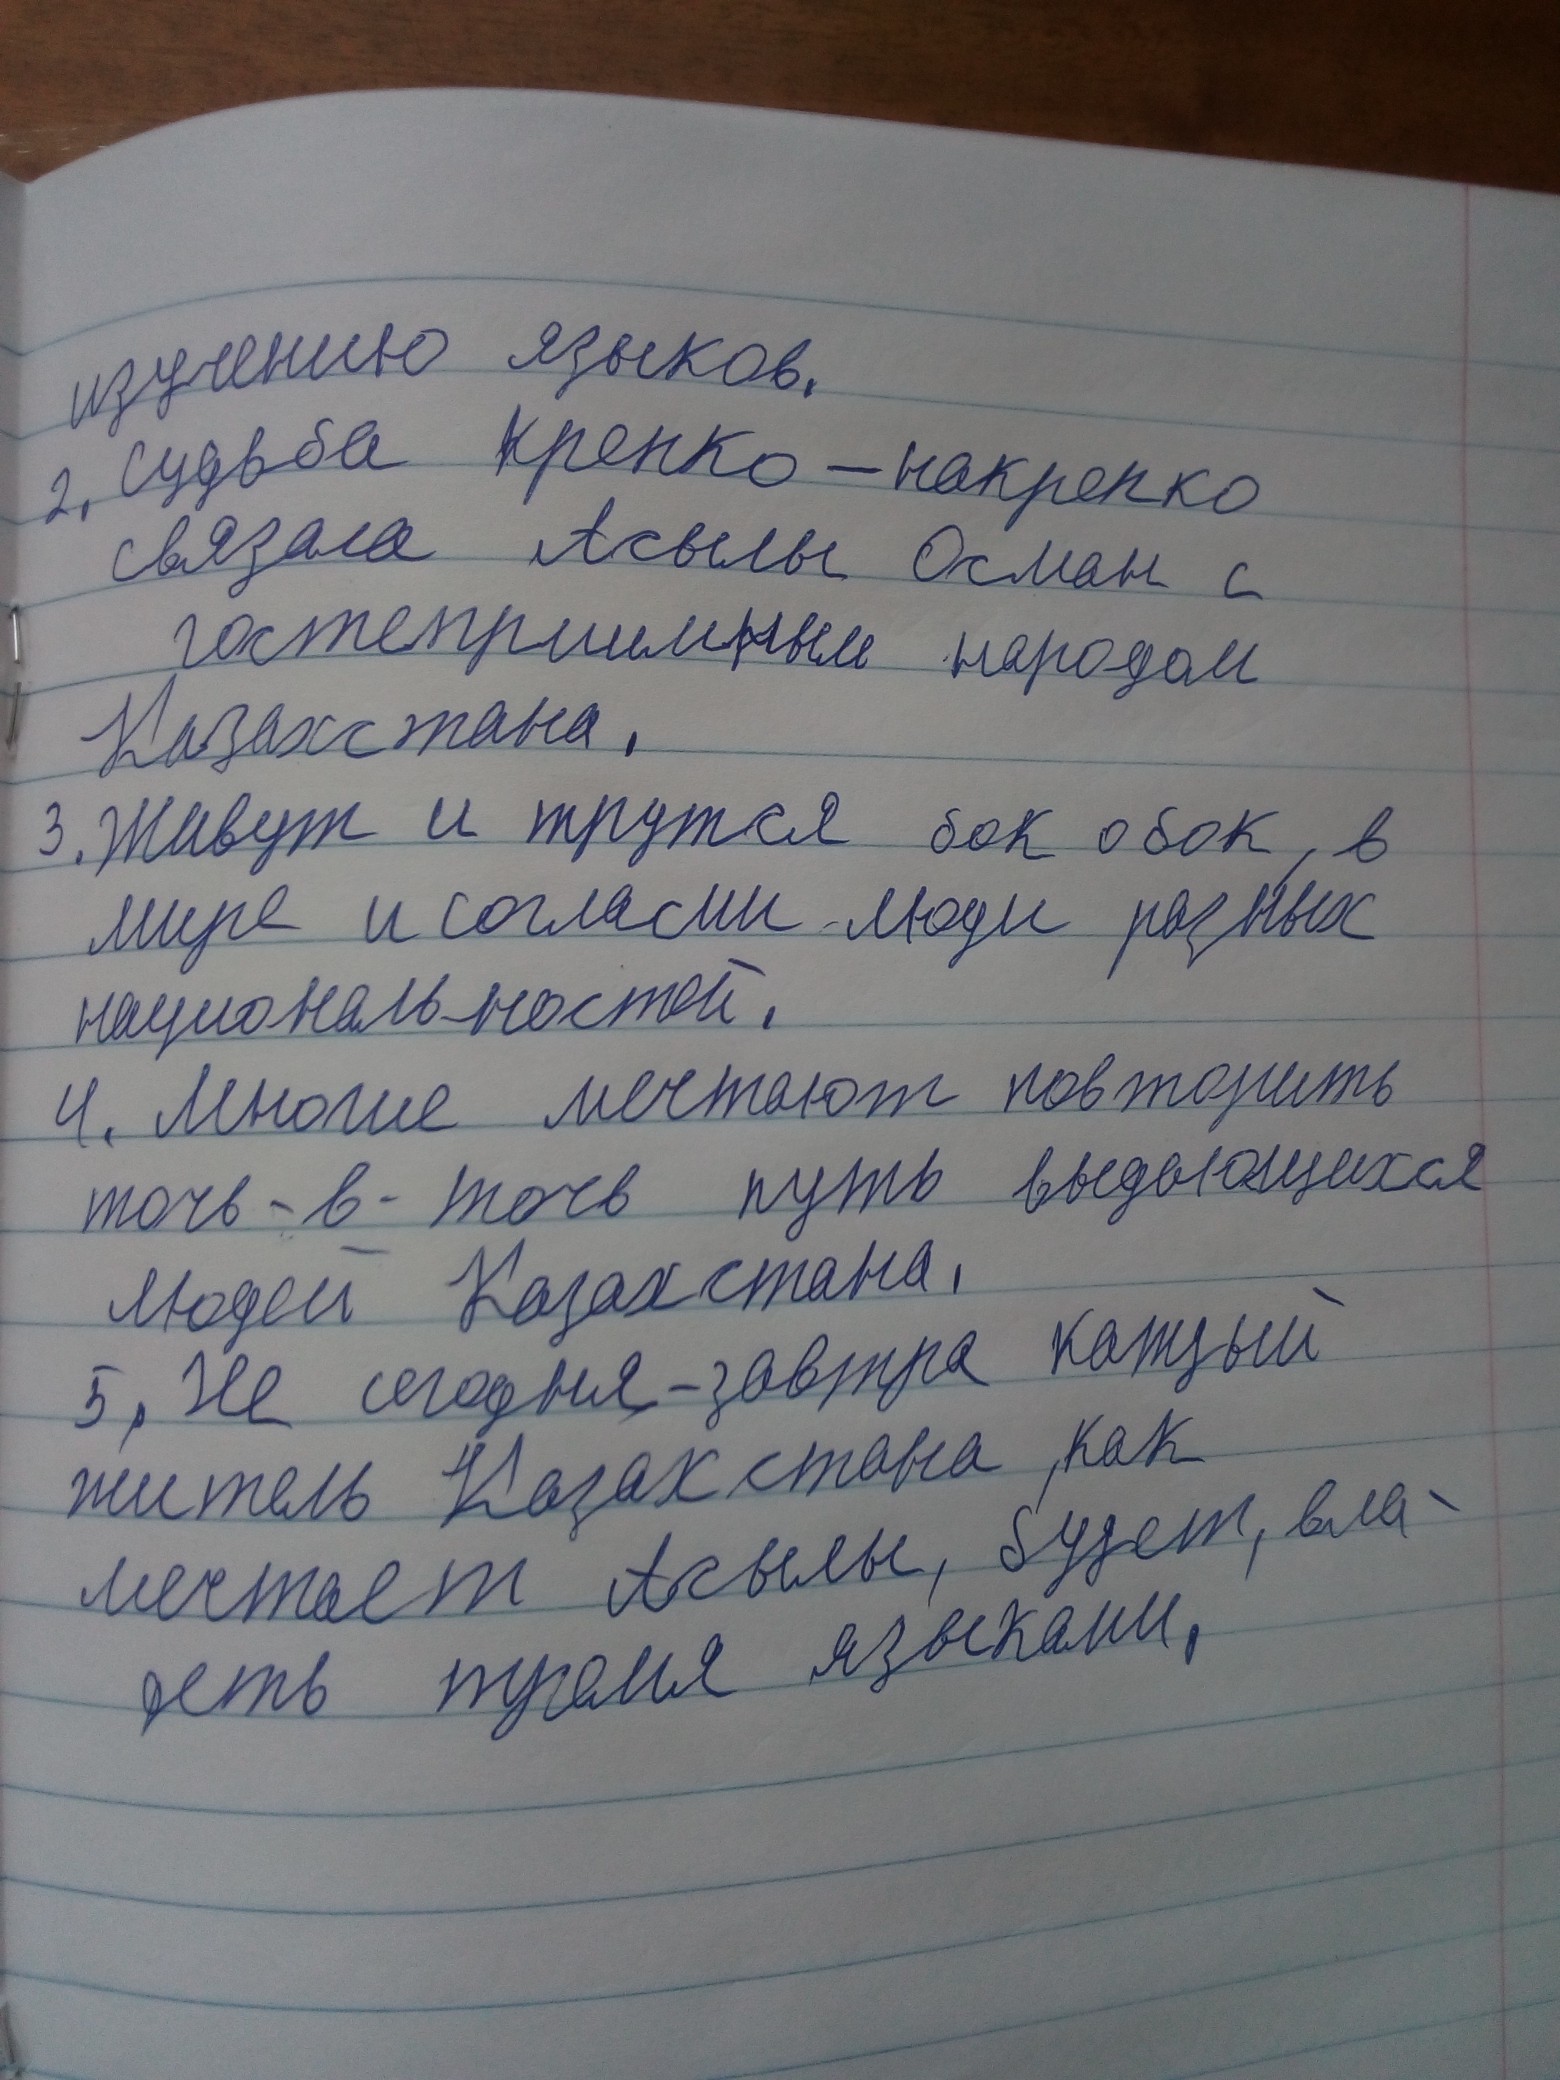 изучению языков.
2. Судьба крепко-накрепко
связала Асылы Осман с
гостеприимным народом
Казахстана.
3. Живут и трутся бок о бок, в
мире и согласии люди разных
национальностей.
4. Многие мечтают повторить
точь-в-точь путь выдающихся
людей Казахстана.
5. Не сегодня-завтра каждый
житель Казахстана, как
мечтает Асылы, будет, вла-
деть тремя языками.